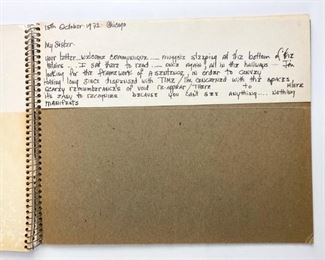 15th October 1972 Chicago
My Sister
your letter welcome communique.... muggsie sleeping at the bottom of the
stairs... I sit here to read.... once again, all in the hallways - I'm
looking for the framework of A SENTENCE, in order to convey
having long since dispensed with TIME / I'm concerned with the SPACES,
scarey remembrances of void re-appear / THERE TO HERE
its easy to recognize BECAUSE YOU CAN'T SEE ANYTHING.... NOTHING
MANIFESTS